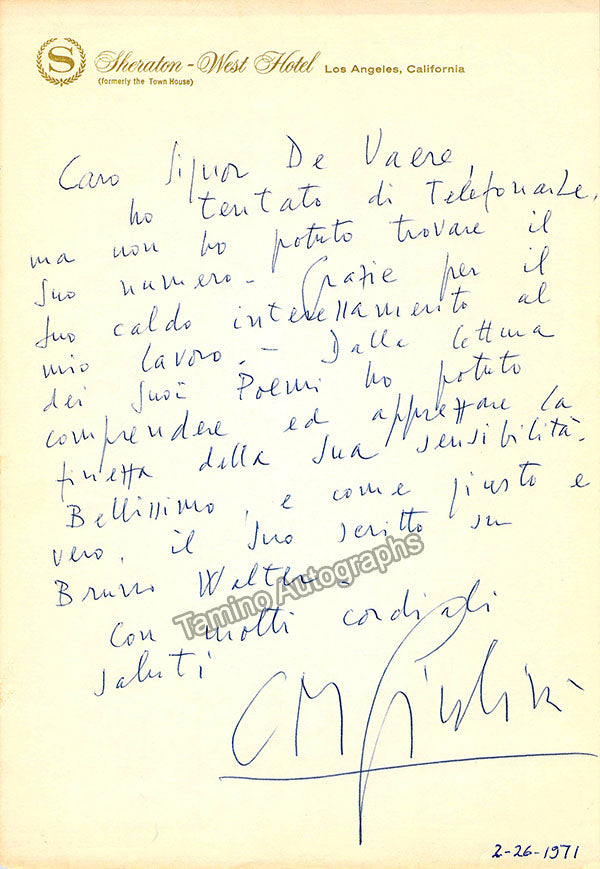 S Sheraton-West Hotel Los Angeles, California
(formerly the Town House)
Caro Signor De Vaere,
ho tentato di Telefonarle,
ma non ho potuto trovare il
Suo numero - Grazie per il
Suo caldo interessamento al
mio lavoro. - Dalla lettura
dei Suoi Poemi ho potuto
comprendere ed apprezzare la
finezza della Sua sensibilità.
Bellissimo, e come giusto e
vero, il Suo scritto su
Bruno Walter.
Con molti cordiali
saluti
CM Giulini
2-26-1971
Tamino Autographs